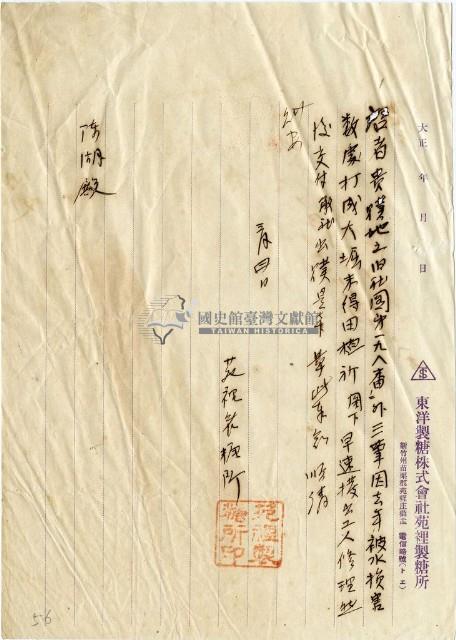 大正 年 月 日
東洋製糖株式會社苑裡製糖所
新竹州苗栗郡苑裡庄苑裡 電信略號(トエ)
啓者貴贌地之旧社圓第一九八番外三筆因去年被水損害
数處打成大堀未得田植所閣下早速撥出工人修理然
後交付承社出贌是幸 草此奉知 順請
三月四日
苑裡製糖所
苑裡製
糖所印
陳湖殿
國史館臺灣文獻館
TAIWAN HISTORICA
56